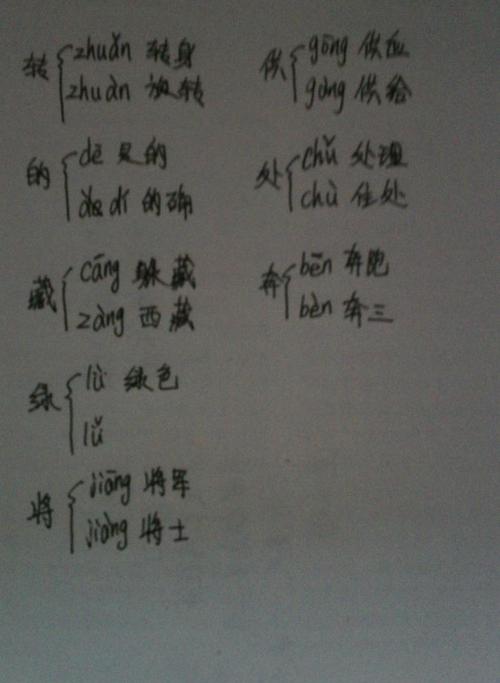 转 zhuǎn 转身
zhuàn 旋转
的 dē 是的
dí 的确
藏 cáng 躲藏
zàng 西藏
绿 lǜ 绿色
lǔ
将 jiāng 将军
jiàng 将士
供 gōng 供应
gòng 供给
处 chǔ 处理
chù 住处
奔 bēn 奔跑
bèn 奔三